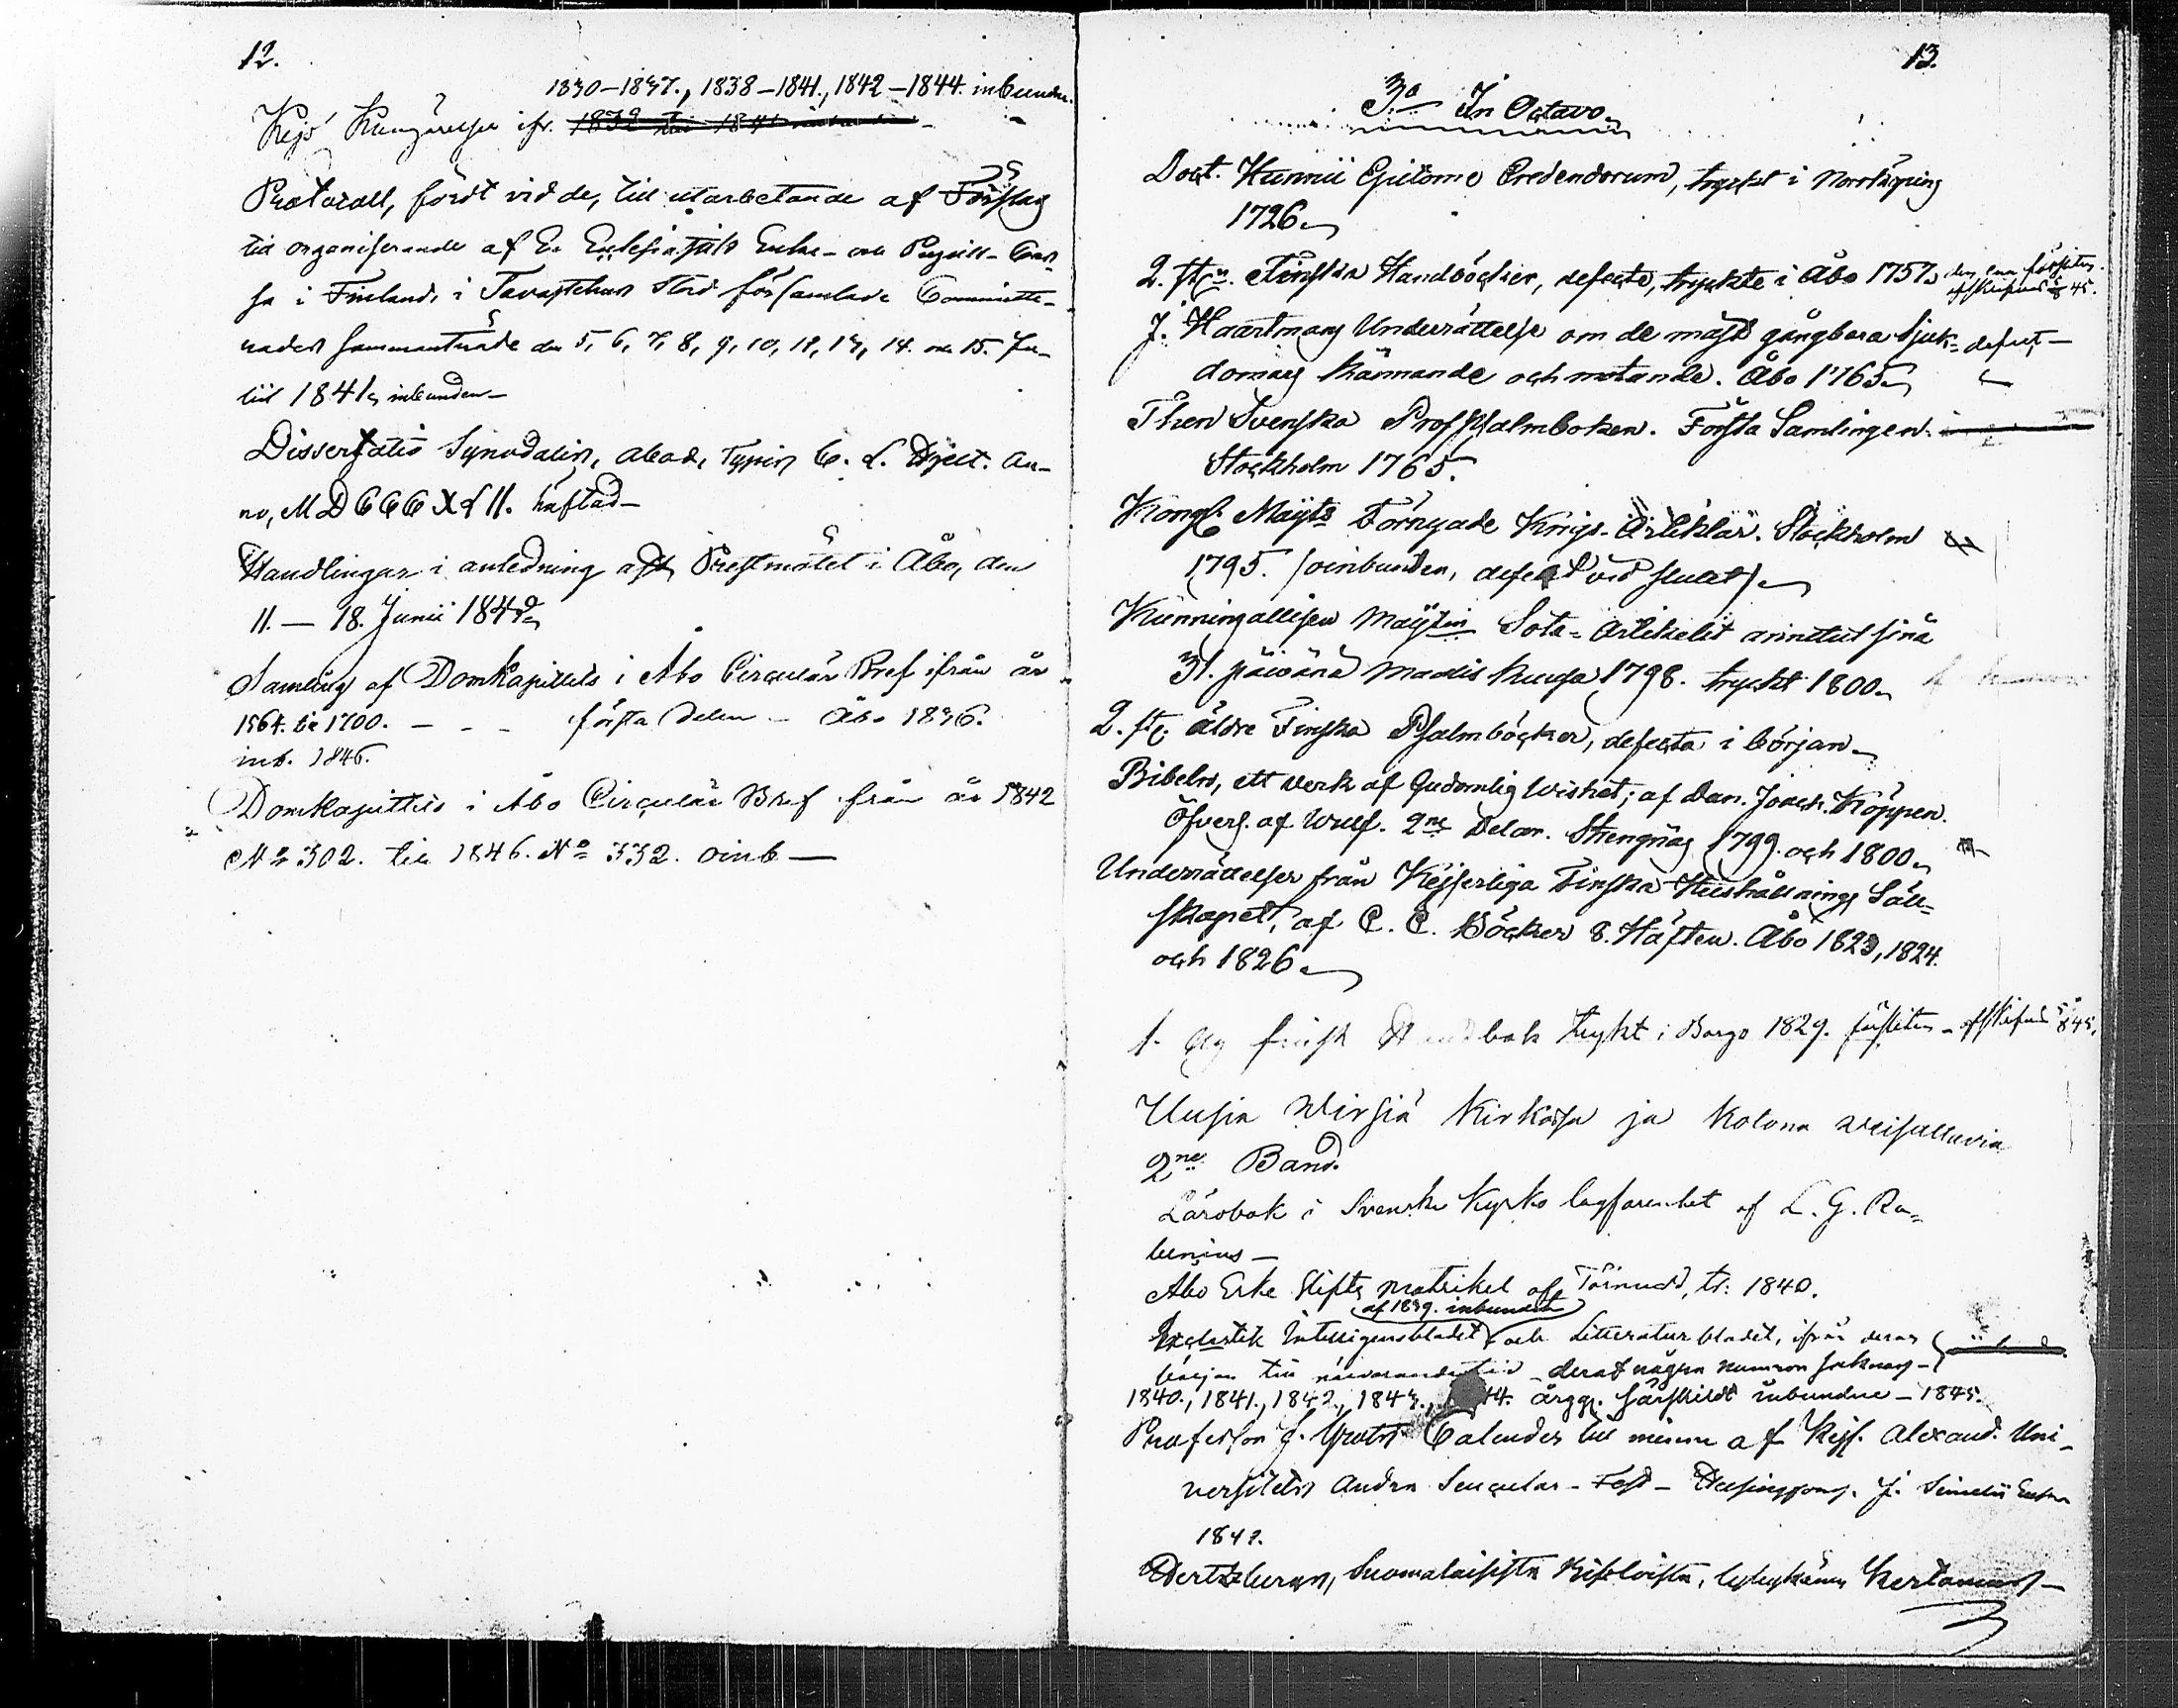 12.
1830–1837., 1838–1841., 1842–1844. inbundne.
Kejs. Kungörelser ifr. 1832 till 1841
Protocoll, fördt vid de, till utarbetande af Förslag
till organiserande af En Ecclesiastik Enke- och Pupill-Cas-
sa i Finland, i Tavastehus Stad församlade Committe-
rades sammanträde den 5, 6, 7, 8, 9, 10, 12, 13, 14. och 15. Ju-
lii 1841, inbunden–
Dissertatio Synodalis, Aboæ, Typis C. L. Hjelt. An-
no, MDCCCXLII. häftad–
Handlingar i anledning af Prestmötet i Åbo, den
11.–18. Junii 1842
Samling af Domkapitlets i Åbo Circulär Bref ifrån år
1564. till 1700. – – – första delen – Åbo 1836.
inb. 1846.
Domkapitlets i Åbo Circulär Bref från år 1842
No 302. till 1846. No 332. oinb –
13.
3o In Octavo.
Doct. Hunnii Epitome Credendorum, tryckt i Norrköping
1726.
2. st. Finska Handböcker, defecta, tryckte i Åbo 1757. den ena försliten
afskrifven 45.
J. Haartmans Underrättelse om de mäst gångbara Sjuk- defect–
domars kännande och motande. Åbo 1765.
Then Svenska Prof Psalmboken. Första Samlingen.
Stockholm 1765.
Kongl. Mayts Förnyade Krigs-Artiklar. Stockholm
1795. (oinbunden, defect vid slutet).
Kunningallisen Maytin Sota-Artikelit annetut sinä
31. päiwänä Maaliskuusa 1798. tryckt 1800.
2. st. äldre Finska Psalmböcker, defecta i början.
Bibeln, ett verk af Gudomlig Wishet; af Dan. Joach. Köppen.
Öfvers. af Wulf. 2ne Delar. Strengnäs 1799. och 1800.
Underrättelser från Kejserliga Finska Hushållnings Säll-
skapet, af C. C. Böcker 8. Häften. Åbo 1823, 1824.
och 1826.
1. ny finsk Handbok tryckt i Borgo 1829. försliten – afskrifven 845.
Uusia Wirsiä Kirkosa ja Kotona weisattavia
2ne Band.
Lärobok i Svenska Kyrko lagfarenhet af L. G. Ra-
benius –
Åbo Erke Stifts matrikel af Törnudd, tr: 1840.
af 1839. inbundet
Ecclesiastik Intelligensbladet och Litteratur bladet, ifrån deras
början till närvarande tid – deraf några numron saknas –
1840., 1841., 1842., 1843., 1844. årgg. särskildt inbundne – 1845.
Professor J. Grots Calender till minne af Kejs. Alexand. Uni-
versitets Andra Secular-Fest – Helsingfors. J. Simelii Enka
1842.
Hertzbergs, Suomalaisista Kertomus –